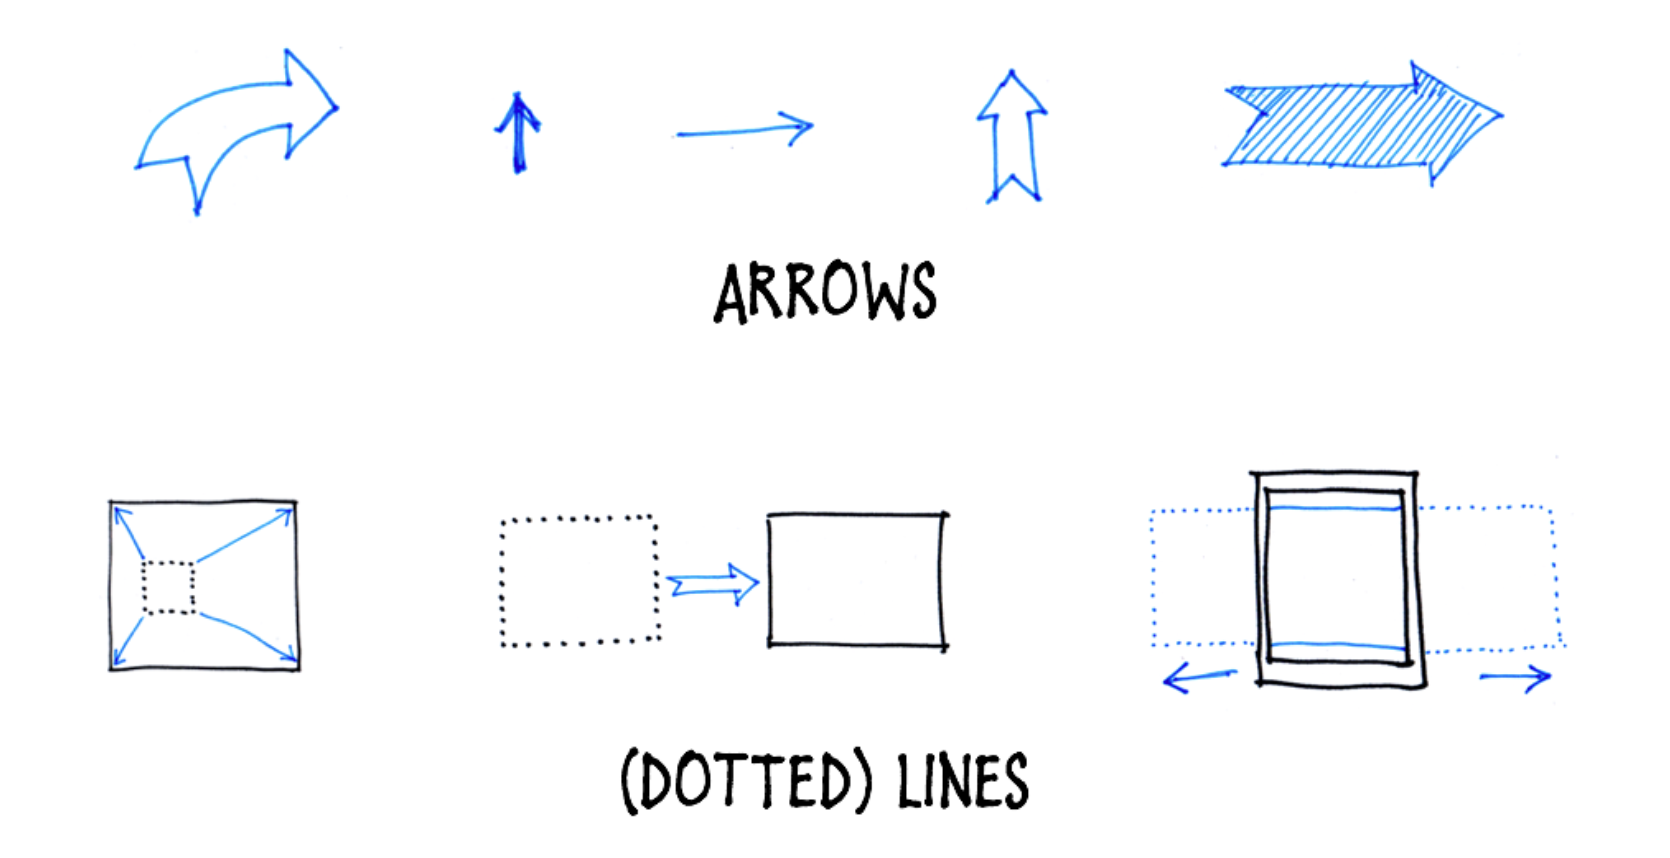 ARROWS
(DOTTED) LINES